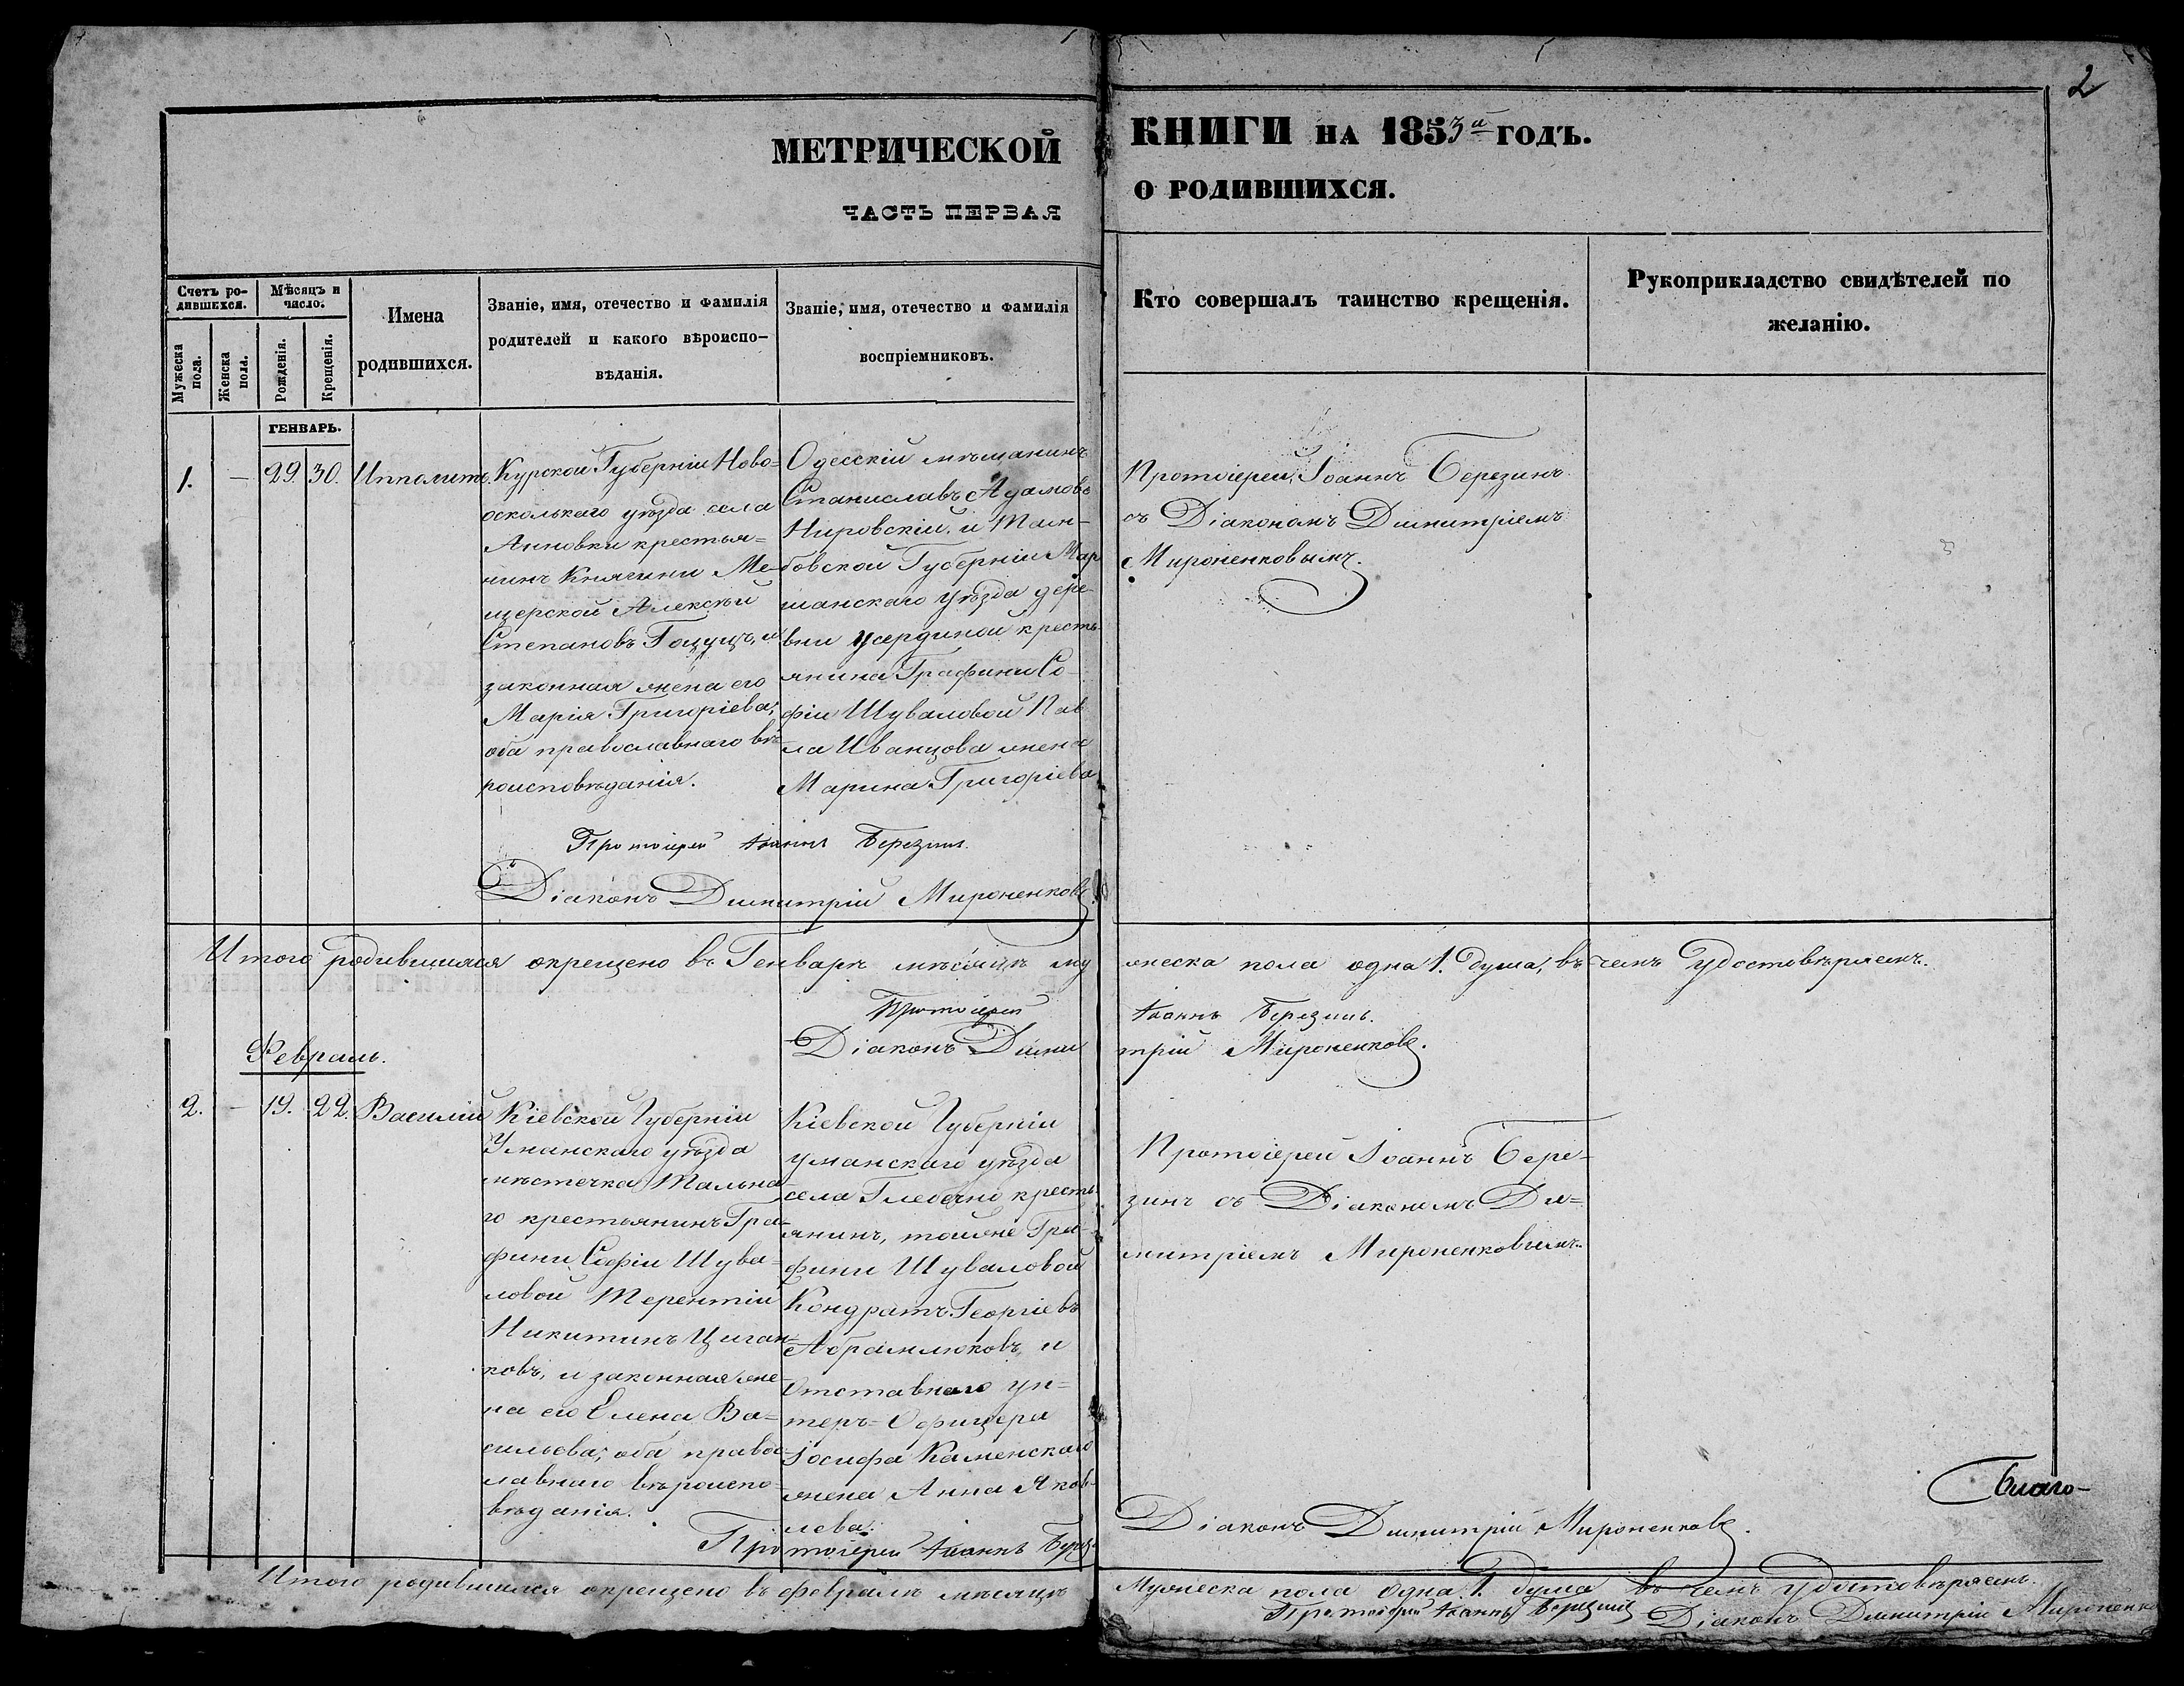 2
МЕТРИЧЕСКОЙ
КНИГИ НА 1853й ГОДЪ.
ЧАСТЬ ПЕРВАЯ
О РОДИВШИХСЯ.
Счетъ ро-
дившихся.
Мужеска
пола.
Женска
пола.
Мѣсяцъ и
число.
Рожденія.
Крещенія.
Имена
родившихся.
Званіе, имя, отечество и фамилія
родителей и какого вѣроиспо-
вѣданія.
Званіе, имя, отечество и фамилія
воспріемниковъ.
Кто совершалъ таинство крещенія.
Рукоприкладство свидѣтелей по
желанію.
ГЕНВАРЬ.
1. — 29. 30. Ипполитъ.
Курской Губерніи Ново=
оскольскаго уѣзда села
Анновки крестья=
нинъ Княгини Ме-
щерской Алексѣй
Степановъ Гоцуцъ, и
законная жена его
Марія Григоріева;
оба православнаго вѣ-
роисповѣданія.
Одесскій мѣщанинъ
Станиславъ Адамовъ
Нировскій, и Там-
бовской Губерніи Мар
шанскаго уѣзда дере-
вни Усердиной кресть-
янина Графини Со-
фіи Шуваловой Пав
ла Иванцова жена
Марина Григоріева
Протоіерей Іоаннъ Березинъ
съ Діакономъ Димитріемъ
Мироненковымъ.
Протоіерей Іоаннъ Березинъ.
Діаконъ Димитрій Мироненковъ.
Итого родившихся окрещено въ Генварѣ мѣсяцѣ му
жеска пола одна 1. душа, въ чемъ удостовѣряемъ.
Протоіерей
Іоаннъ Березинъ.
Діаконъ Дими
трій Мироненковъ.
Февраль.
2. — 19. 22. Василій
Кіевской Губерніи
Уманскаго уѣзда
мѣстечка Тальна-
го крестьянинъ Гра-
фини Софіи Шува-
ловой Терентій
Никитинъ Циган-
ковъ, и законная же-
на его Елена Ва=
сильева; оба правос-
лавнаго вѣроиспо-
вѣданія.
Кіевской Губерніи
Уманскаго уѣзда
села Глебочно кресть-
янинъ, тойже Гра-
фини Шуваловой
Кондратъ Георгіевъ
Абрамлюковъ, и
Отставнаго ун=
теръ=Офицера
Іосифа Каменскаго
жена Анна Яков-
лева.
Протоіерей Іоаннъ Бере=
зинъ съ Діакономъ Ди=
митріемъ Мироненковымъ.
Благо-
Протоіерей Іоаннъ Берез
Діаконъ Димитрій Мироненковъ.
Итого родившихся окрещено въ февралѣ мѣсяцѣ
Мужеска пола одна 1. душа въ чемъ удостовѣряемъ.
Протоіерей Іоаннъ Березинъ Діаконъ Димитрій Мироненко